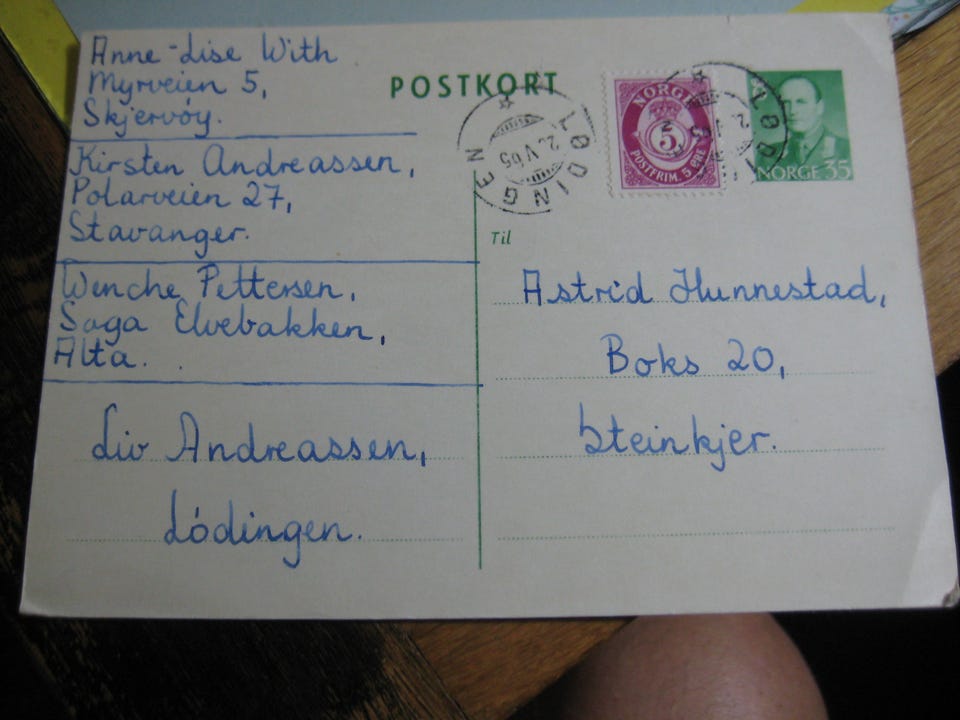 Anne-Lise With
Myrveien 5,
Skjervöy.
Kirsten Andreassen,
Polarveien 27,
Stavanger.
Wenche Pettersen,
Saga Elvebakken,
Alta.
Liv Andreassen,
Lódingen.
POSTKORT
LØDINGEN
2. V 65
NORGE
5
POSTFRIM. 5 ØRE
LØDI
NORGE 35
Til
Astrid Hunnestad,
Boks 20,
Steinkjer.